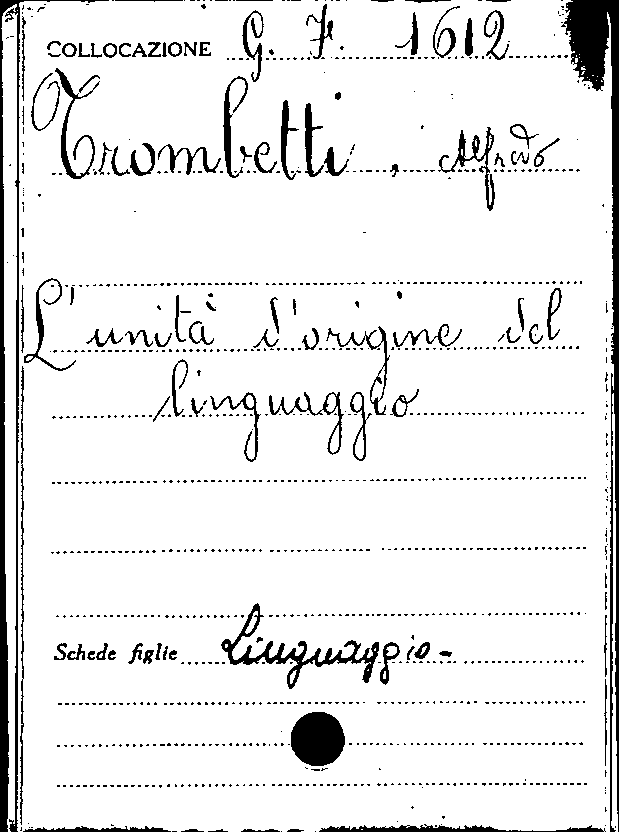 COLLOCAZIONE G. F. 1612
Trombetti, Alfredo
L'unità d'origine del
linguaggio
Schede figlie Linguaggio-